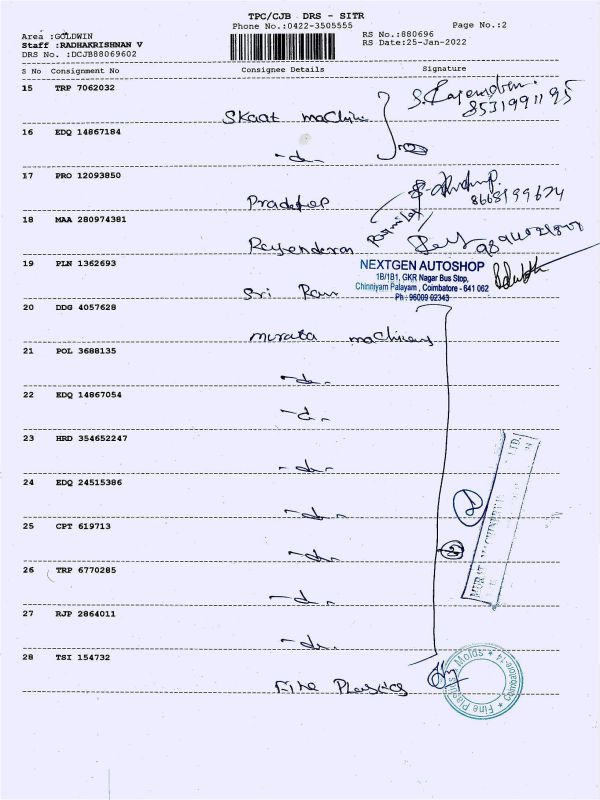 TPC/CJB DRS - SITR
Phone No.:0422-3505555
Page No.:2
Area :GOLDWIN
Staff :RADHAKRISHNAN V
DRS No. :DCJB88069602
RS No.:880696
RS Date:25-Jan-2022
S No Consignment No Consignee Details Signature
15 TRP 7062032
Skaat machine
8531991195
16 EDQ 14867184
-do-
17 PRO 12093850
Pradeep
8668199674
18 MAA 280974381
Rajenderan
19 PLN 1362693
Sri Ram
NEXTGEN AUTOSHOP
1B/1B1, GKR Nagar Bus Stop,
Chinniyam Palayam, Coimbatore - 641 062
Ph : 96009 02343
20 DDG 4057628
murata machinery
21 POL 3688135
-do-
22 EDQ 14867054
-do-
23 HRD 354652247
-do-
24 EDQ 24515386
-do-
25 CPT 619713
-do-
26 TRP 6770285
-do-
27 RJP 2864011
-do-
28 TSI 154732
Fine Plastics
Fine Plastics Molds * Coimbatore-14 *